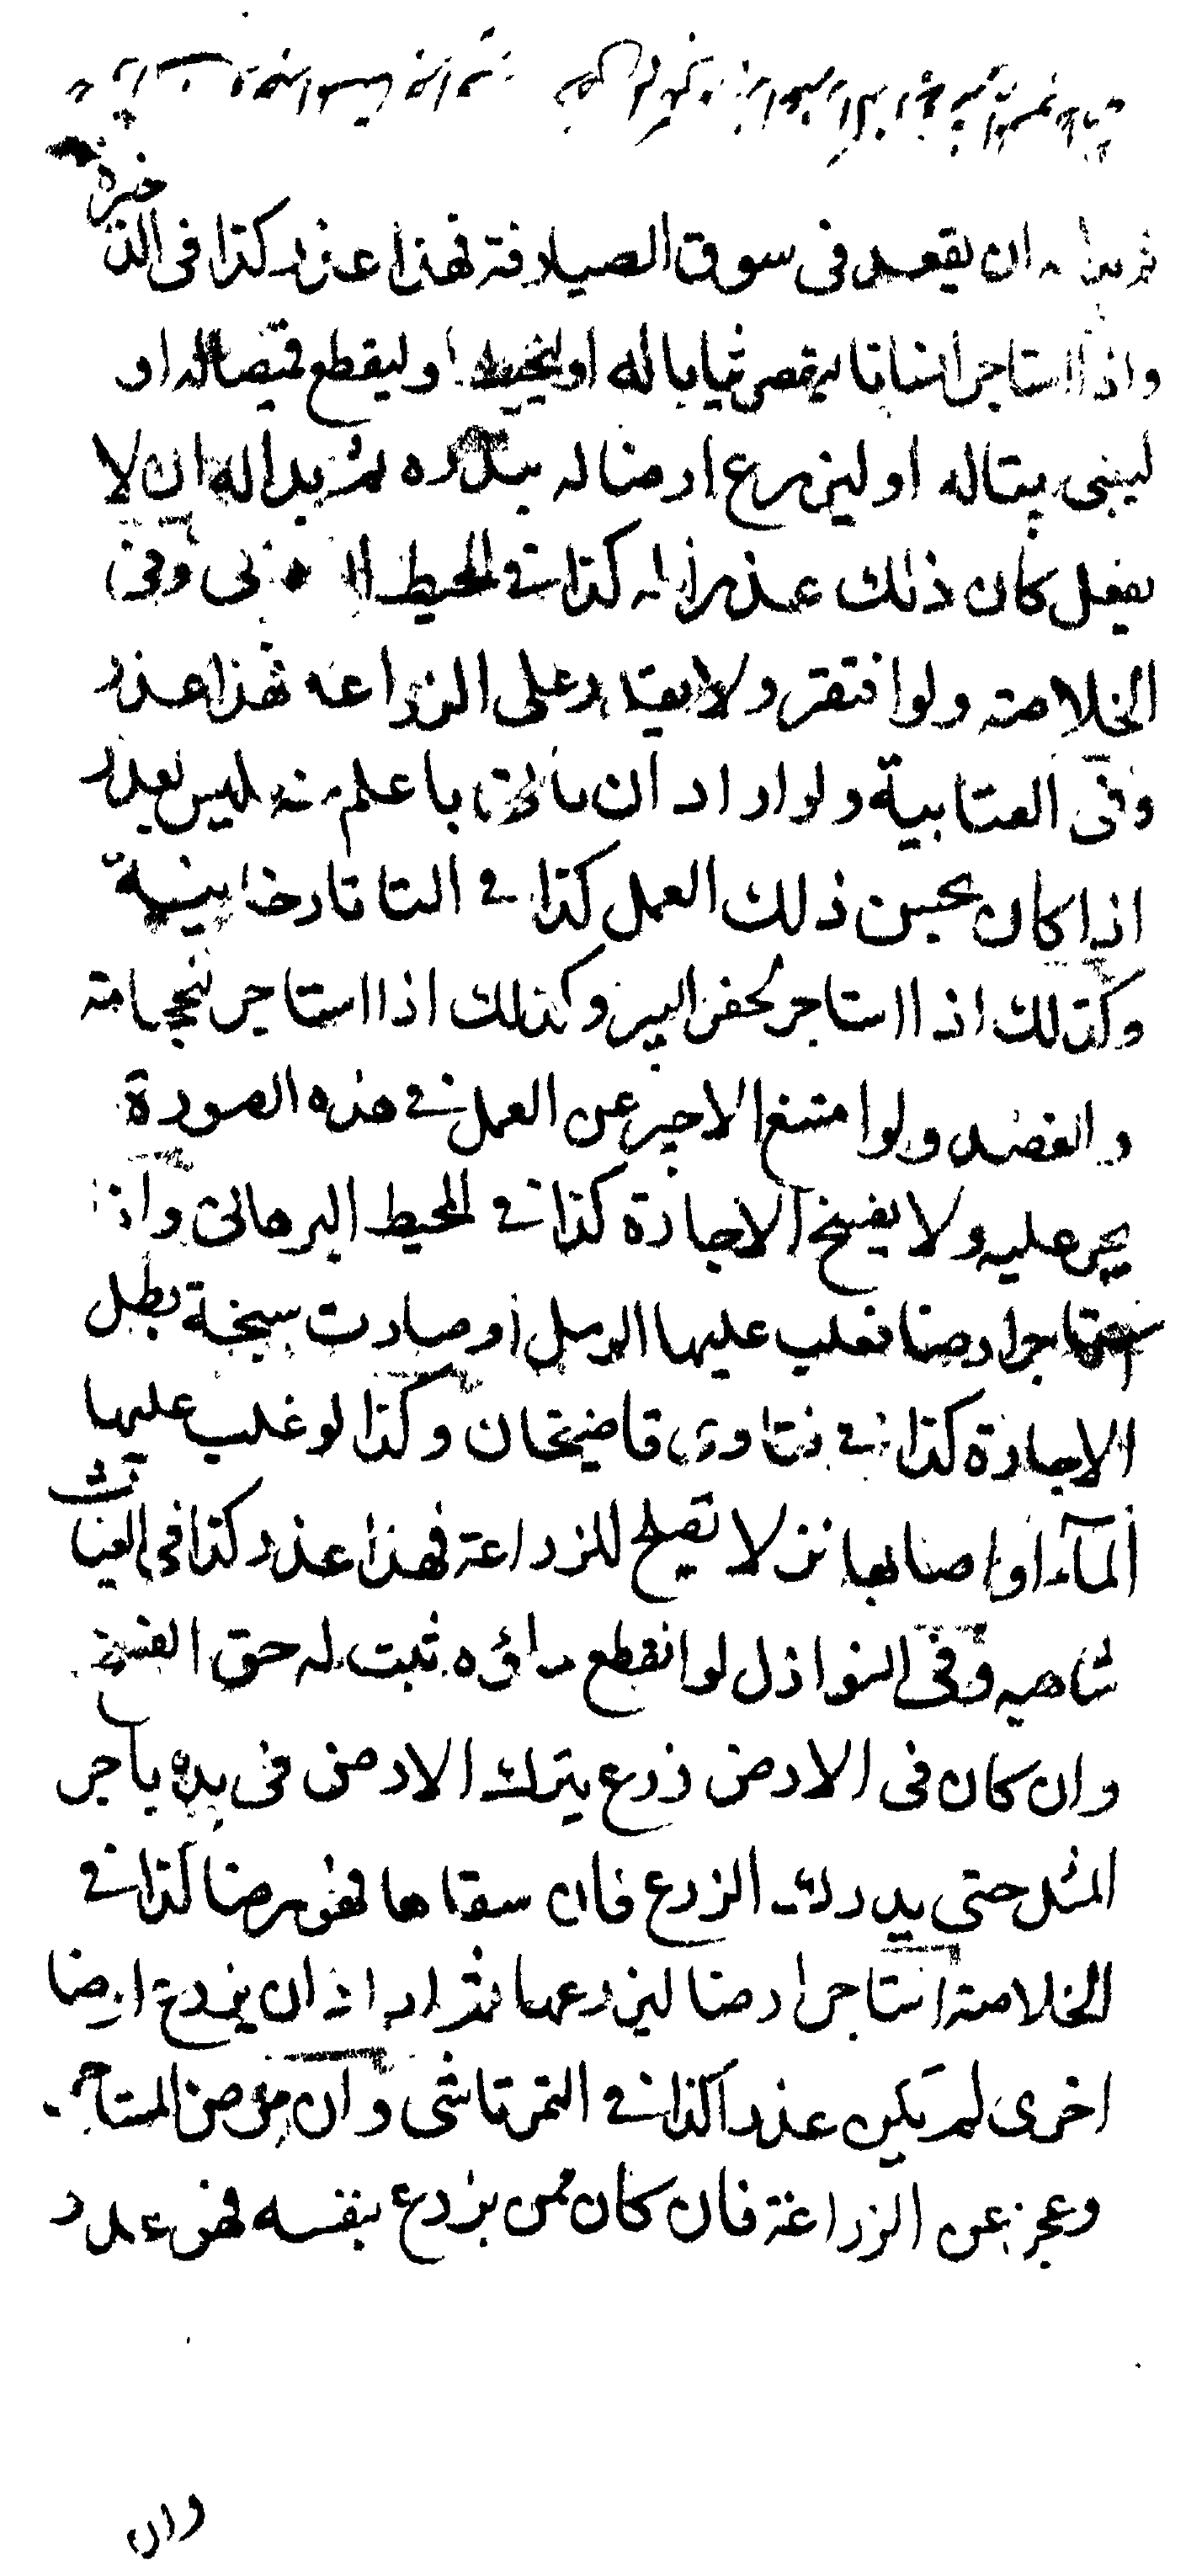 ثم بدا له ان يقعد فى سوق الصيارفة فهذا عذر كذا فى الذخيرة
واذا استاجر انسانا ليقصر ثيابا له او ليخيط او ليقطع قميصا له او
ليبنى بيتا له او ليزرع ارضا له ببذره ثم بدا له ان لا
يفعل كان ذلك عذرا له كذا فى المحيط وفى
الخلاصة ولو افتقر ولا يقدر على الزراعه فهذا عذر
وفى العتابية ولو اراد ان ياتى باعلم منه ليس بعذر
اذا كان يحسن ذلك العمل كذا فى التاتارخانية
وكذلك اذا استاجر لحفر البير وكذلك اذا استاجر لحجامة
والفصد ولو امتنع الاجير عن العمل فى هذه الصورة
يجبر عليه ولا يفسخ الاجارة كذا فى المحيط البرهانى واذا
استاجر ارضا فغلب عليها الرمل او صارت سبخة بطل
الاجارة كذا فى فتاوى قاضيخان وكذا لو غلب عليها
المآء او اصابها نز لا تصلح للزراعة فهذا عذر كذا فى الغياث
شاهيه وفى النوازل لو انقطع ماؤه ثبت له حق الفسخ
وان كان فى الارض زرع يترك الارض فى يده باجر
المثل حتى يدرك الزرع فان سقاها فهو رضا كذا فى
الخلاصة استاجر ارضا ليزرعها ثم اراد ان يزرع ارضا
اخرى لم يكن عذرا كذا فى التمرتاشى وان مرض المستاجر
وعجز عن الزراعة فان كان ممن يزرع بنفسه فهو عذر
وان